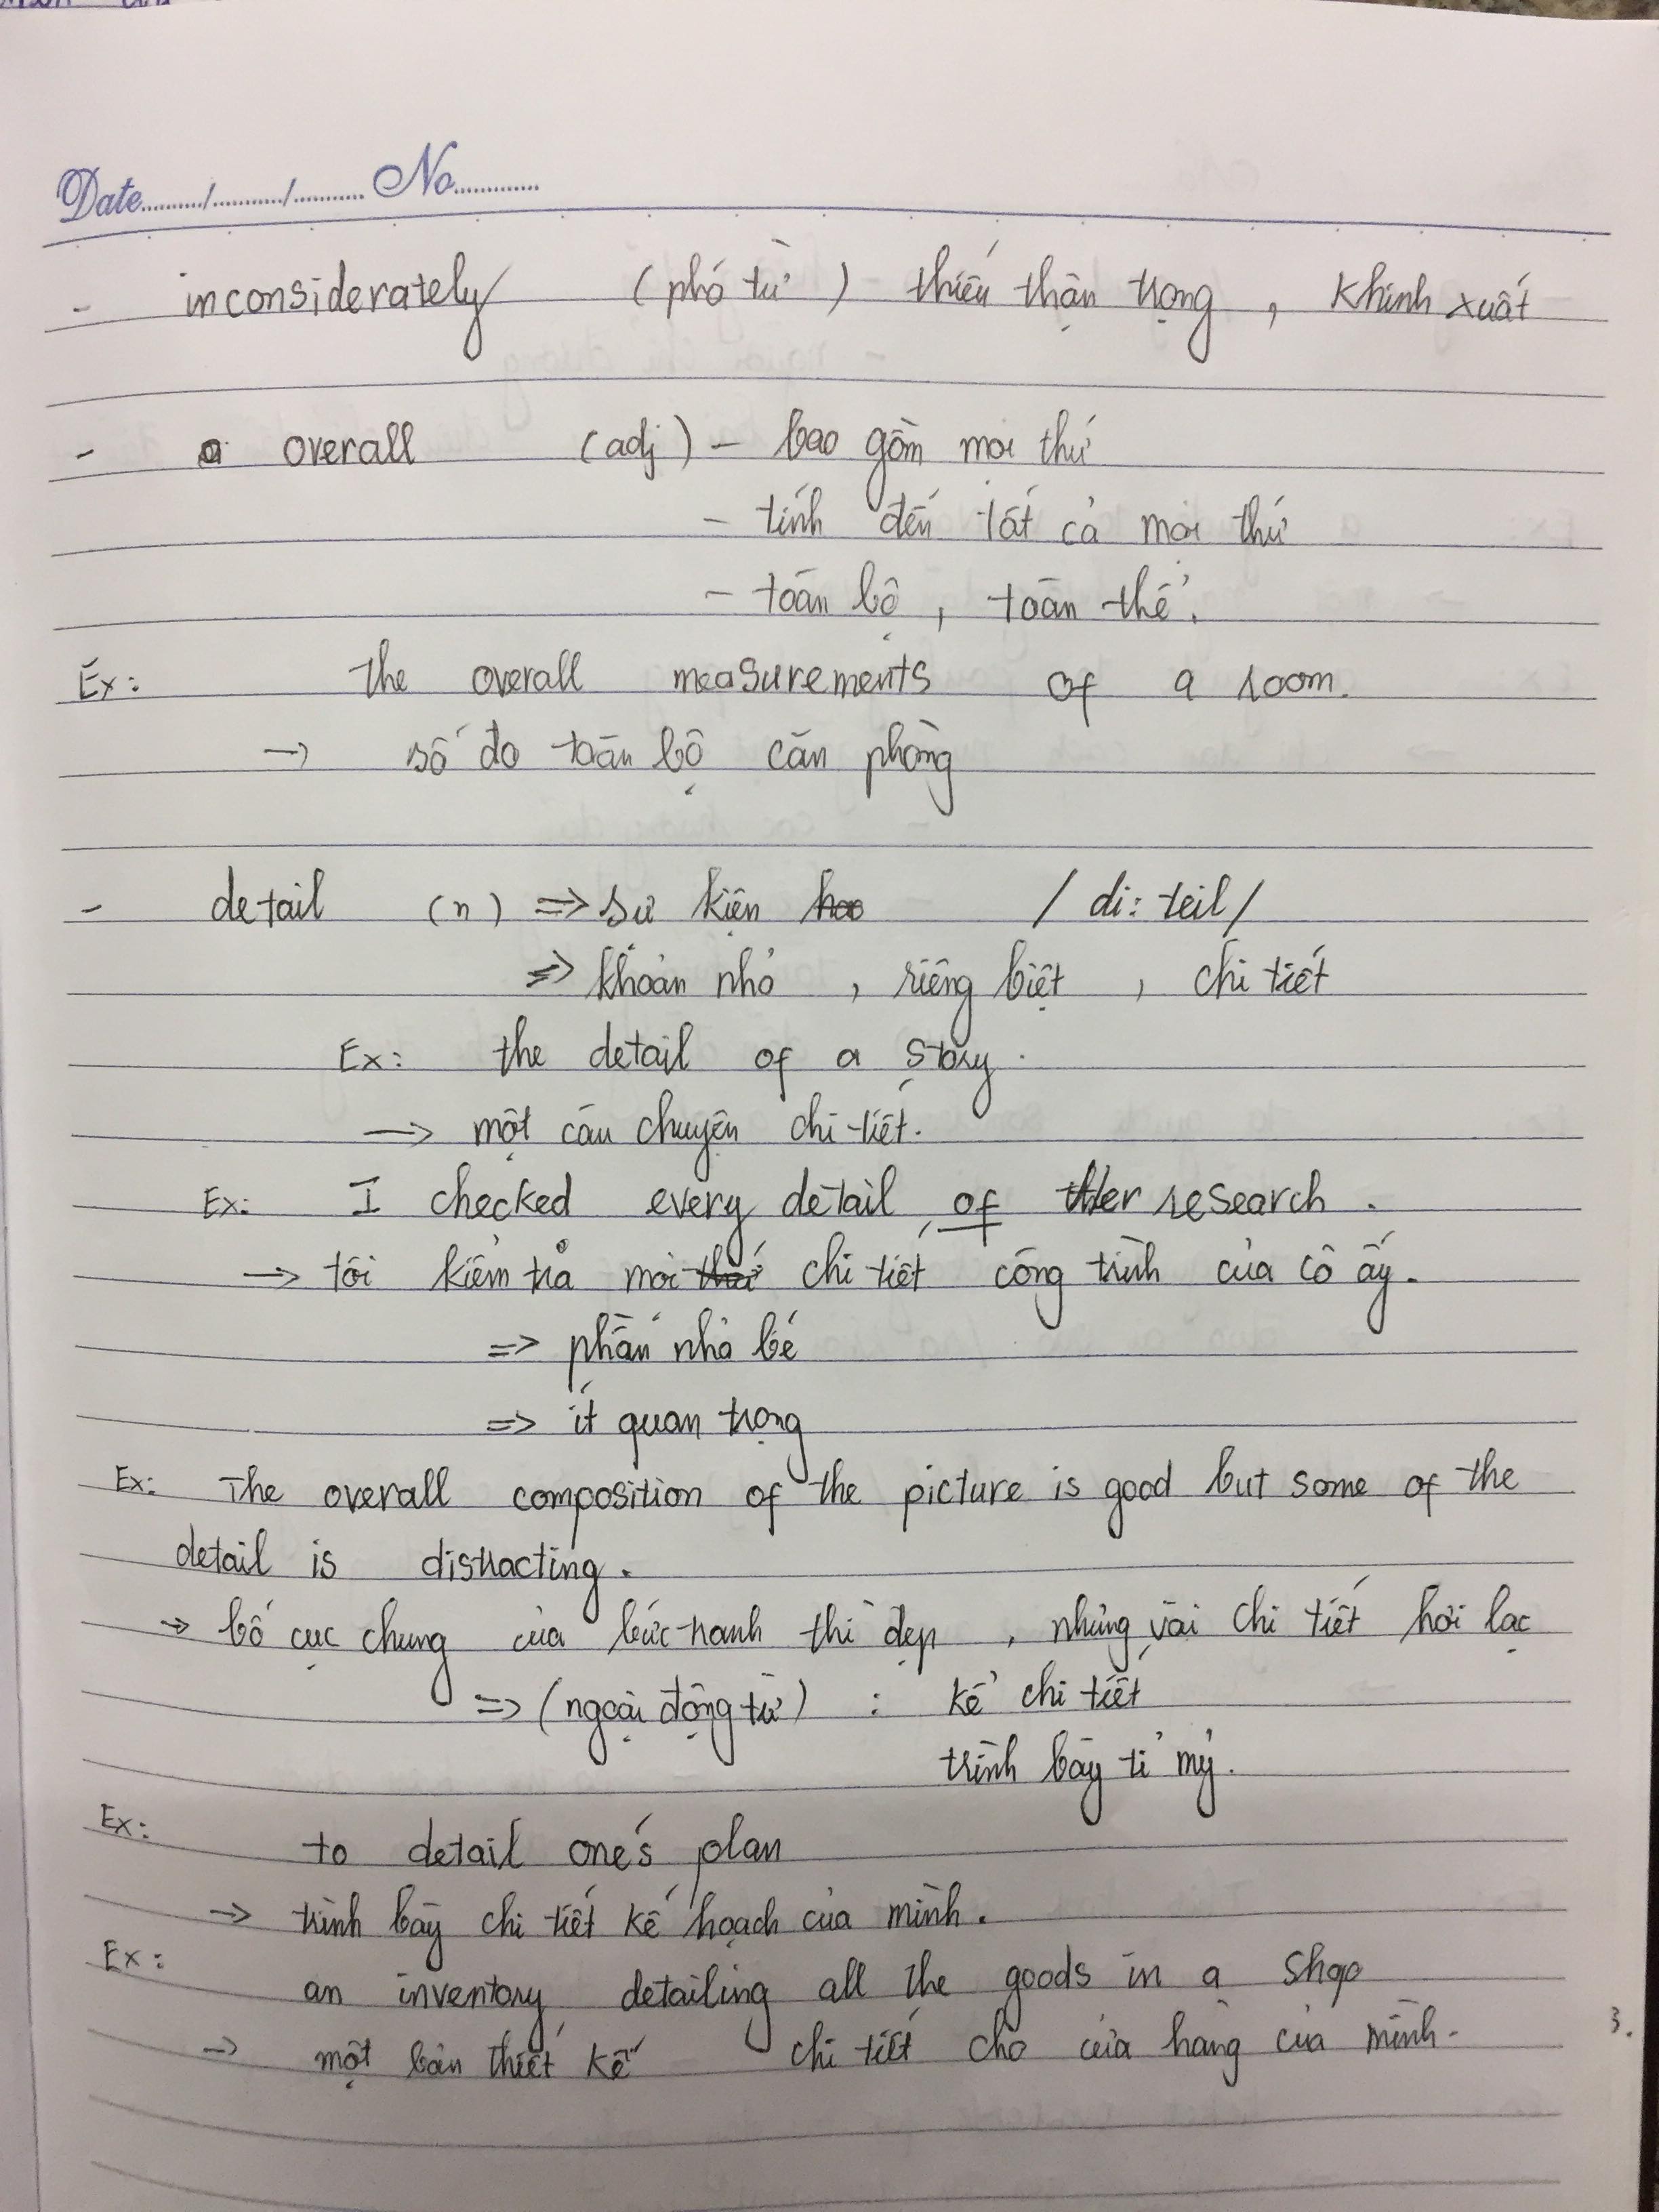 Date........../.........../........... No.............
- inconsiderately (phó từ) - thiếu thận trọng, khinh xuất
- overall (adj) - bao gồm mọi thứ
- tính đến tất cả mọi thứ
- toàn bộ, toàn thể.
Ex: the overall measurements of a room.
→ số đo toàn bộ căn phòng
- detail (n) => sự kiện /di:teil/
=> khoản nhỏ, riêng biệt, chi tiết
Ex: the detail of a story.
→ một câu chuyện chi tiết.
Ex: I checked every detail of her research.
→ tôi kiểm tra mọi chi tiết công trình của cô ấy.
=> phần nhỏ bé
=> ít quan trọng
Ex: The overall composition of the picture is good but some of the
detail is distracting.
→ bố cục chung của bức tranh thì đẹp, nhưng vài chi tiết hơi lạc
=> (ngoại động từ) : kể chi tiết
trình bày tỉ mỷ.
Ex: to detail one's plan
→ trình bày chi tiết kế hoạch của mình.
Ex: an inventory detailing all the goods in a shop
→ một bản thiết kế chi tiết cho cửa hàng của mình.
3.